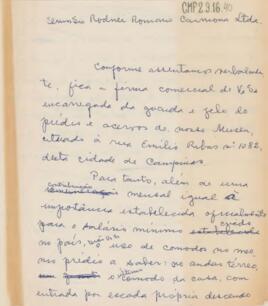 CMP2.9.16.40
Senhores Rodner Romano Carmona Ltda.
Conforme assentamos verbalmen
te, fica a firma comercial de V. Sa
encarregada da guarda e zelo do
prédio e acervos do nosso Museu,
situado à rua Emílio Ribas nº 1082,
desta cidade de Campinas.
Para tanto, além de uma
contribuição
mensal igual a
importância estabelecida oficialmente
para o salário mínimo estabelecido
no país, o uso de comodos no mes
mo prédio a saber: no andar térreo,
o comodo da casa, com
entrada por escada própria descendo